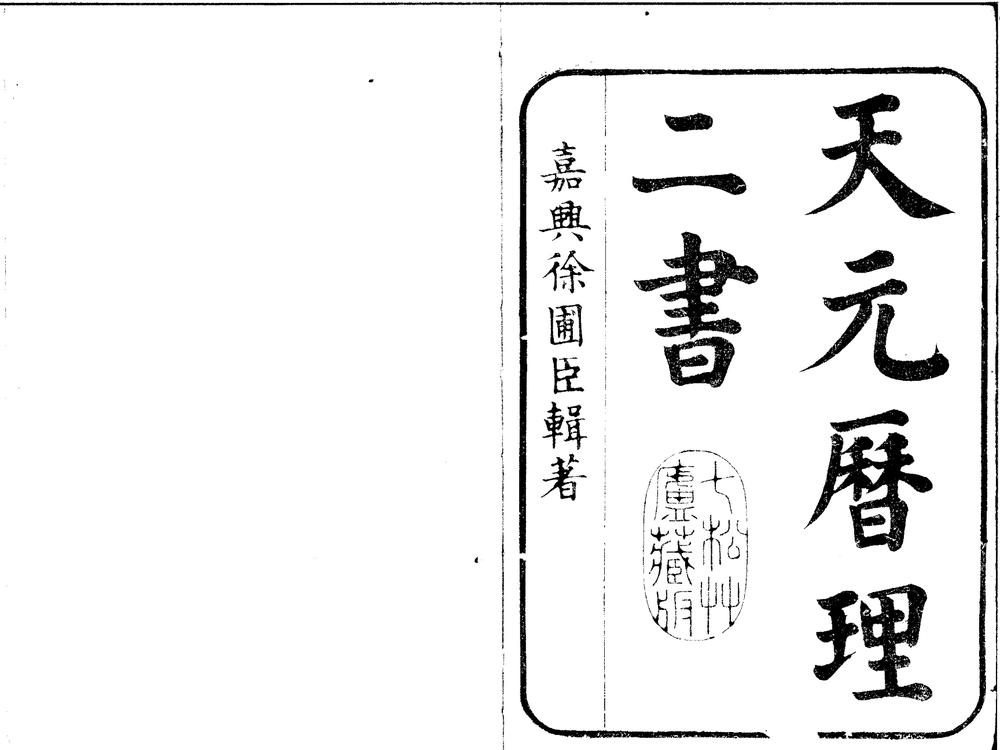 天元曆理
二書
七松艸
廬藏版
嘉興徐圃臣輯著